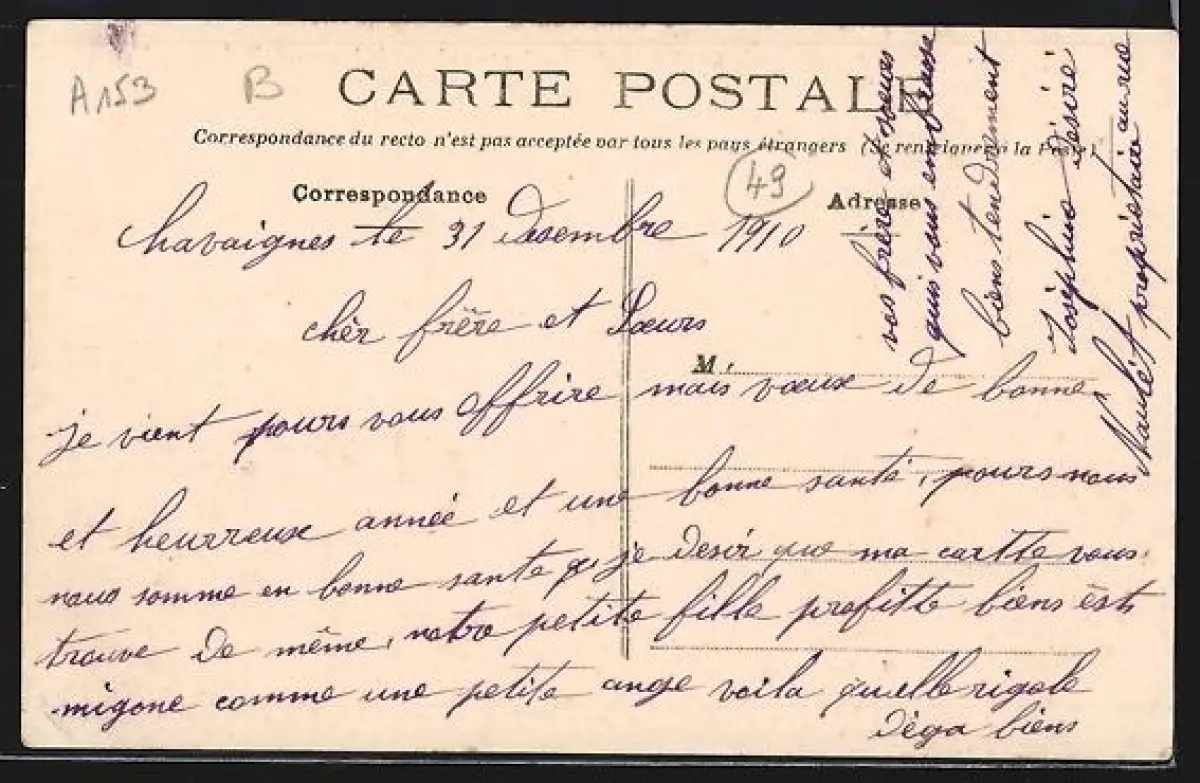 A153 B
CARTE POSTALE
Correspondance du recto n'est pas acceptée par tous les pays étrangers (Se renseigner à la Poste)
Correspondance
49
Adresse
Chavaignes le 31 desembre 1910
chèr frère et Soeurs
M.
je vient pours vous offrire mais voeux de bonne
et heurreuse année et une bonne santé, pours nous
nous somme en bonne sante je desir que ma cartte vous
trouve de même, notre petite fille profitte biens èst
migone comme une petite ange voila quelle rigole
dèga biens
vos frère et soeurs
quis vous embrasse
biens tendrement
Josèphine Désiré
Naulèt propriètaire